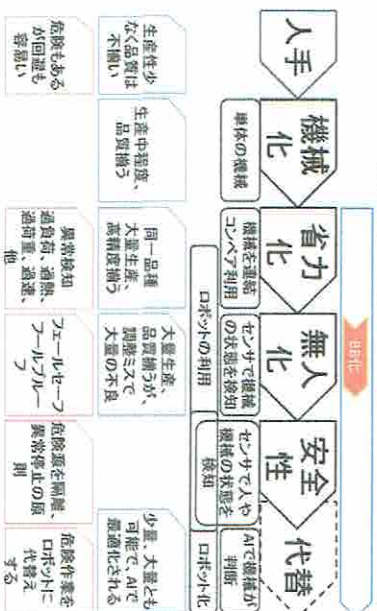 BB化
人手
機械
化
省力
化
無人
化
安全
性
代替
単体の機械
機械を連結
コンベア利用
センサで機械
の状態を検知
センサで人や
機械の状態を
検知
AIで機械が
判断
ロボットの利用
ロボット化
生産性少
なく品質は
不揃い
生産中程度、
品質揃う
同一品種
大量生産、
高精度揃う
大量生産、
品質揃うが、
調整ミスで
大量の不良
少量、大量とも
可能で、AIで
最適化される
危険もある
が回避も
容易い
異常検知
過負荷、過熱、
過荷重、過速、
他
フェールセーフ
フールプルー
フ
危険源を隔離、
異常停止の原
則
危険作業を
ロボットに
代替え
する